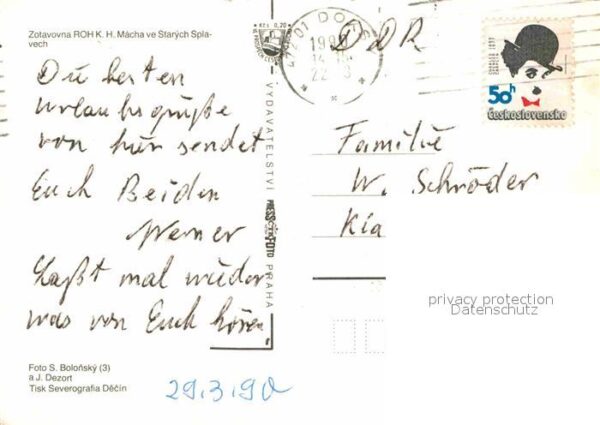 Zotavovna ROH K. H. Mácha ve Starých Spla-
vech
Die besten
Urlaubsgrüße
von hier sendet
Euch Beiden
Werner
Laßt mal wieder
was von Euch hören
Foto S. Boloňský (3)
a J. Dezort
Tisk Severografia Děčín
29.3.90
VYDAVATELSTVÍ PRESSFOTO PRAHA
472 01 DO
DDR
50h
Československo
Familie
W. Schröder
privacy protection
Datenschutz